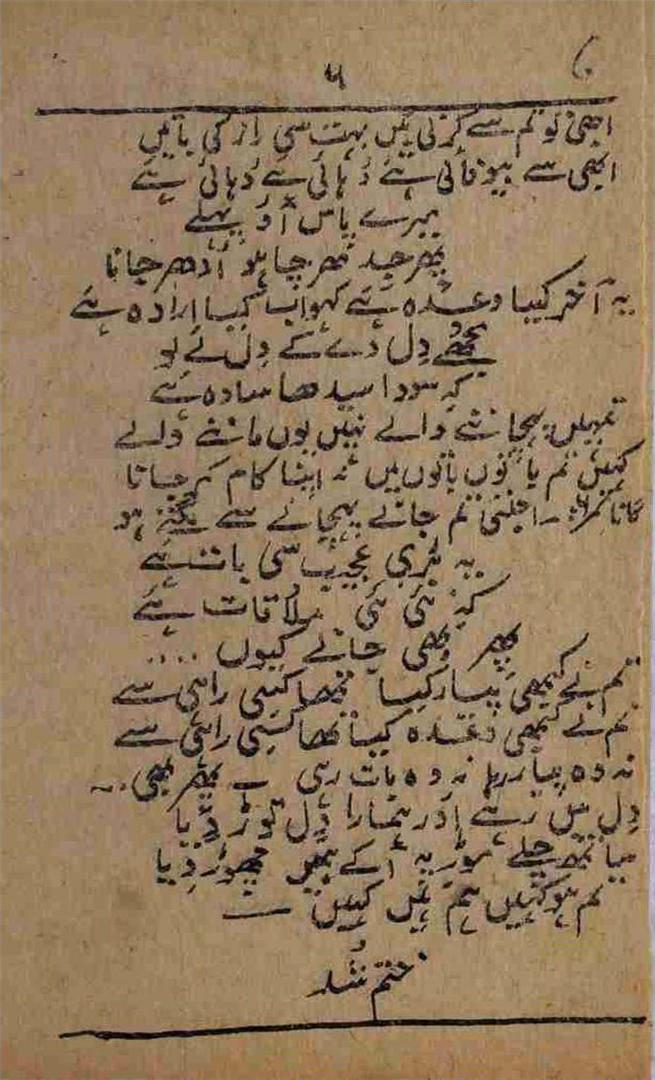 ۵
ابھی تو تم سے کرنی ہیں بہت سی راز کی باتیں
ابھی سے بیوفائی ہے دُہائی ہے دُہائی ہے
میرے پاس آؤ پہلے
پھر جدھر چاہو اُدھر جانا
یہ آخر کیسا وعدہ ہے کہو اب کیسا ارادہ ہے
مجھے دِل دے کے دِل لے لو
کہ سودا سیدھا سادہ ہے
تمہیں پہچاننے والے نہیں یوں ماننے والے
کہیں تم باتوں باتوں میں نہ اپنا کام کر جانا
گانا نمبر ۶ ۔ اجنبی تم جانے پہچانے سے لگتے ہو
یہ بڑی عجیب سی بات ہے
کہ نئی نئی ملاقات ہے
پھر بھی جانے کیوں ....
تم نے کبھی پیار کیا تھا کسی راہی سے
تم نے کبھی وعدہ کیا تھا کسی راہی سے
نہ وہ پیار رہا نہ وہ بات رہی ۔ پھر بھی ..
دِل میں رہے اور ہمارا دِل توڑ دیا
ساتھ چلے موڑ پہ آ کے ہمیں چھوڑ دِیا
تم ہو کہیں ہم ہیں کہیں ۔
ختم شُد